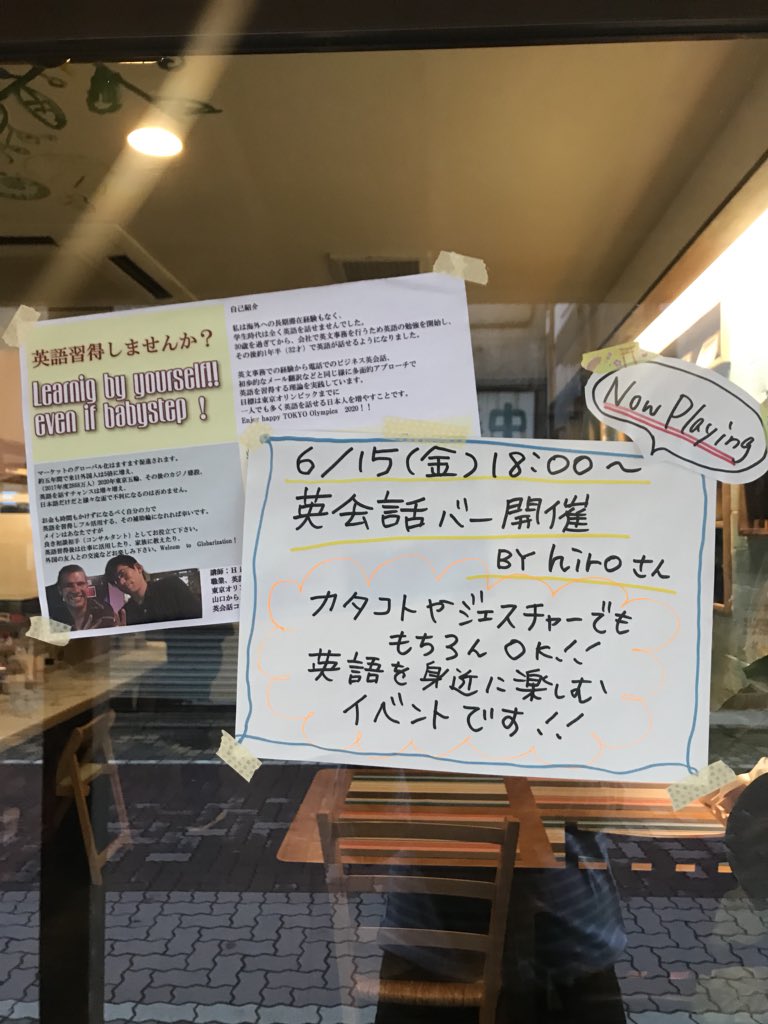 英語習得しませんか？
Learnig by yourself!!
even if babystep！
自己紹介
私は海外への長期滞在経験もなく、
学生時代は全く英語を話せませんでした。
30歳を過ぎてから、会社で英文事務を行うため英語の勉強を開始し、
その後約1年半（32才）で英語が話せるようになりました。
英文事務での経験から電話でのビジネス英会話、
初歩的なメール翻訳などと同じ様に多面的アプローチで
英語を習得する理論を実践しています。
目標は東京オリンピックまでに
一人でも多く英語を話せる日本人を増やすことです。
Enjoy happy TOKYO Olympics 2020！！
マーケットのグローバル化はますます促進されます。
約五年間で来日外国人は5倍に増え、
2020年東京五輪、その後のカジノ建設、
英語を話すチャンスは増々増え、
日本語だけだと様々な面で不利になるのは否めません。
お金も時間もかけずになるべく自分の力で
英語を習得しフル活用する、その補助輪になれれば幸いです。
メインはあなたですから
良き相談相手（コンサルタント）としてお役立て下さい。
英語習得後は仕事に活用したり、家族に教えたり、
外国の友人との交流などお楽しみ下さい。Welcom to Globarization！
講師：
職業、英語
東京オリン
山口から
英会話コ
中
Now Playing
6/15(金)18:00～
英会話バー開催
BY hiroさん
カタコトやジェスチャーでも
もちろんOK!!
英語を身近に楽しむ
イベントです!!